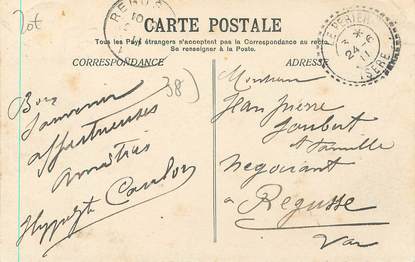 20f
REGUS
10
CARTE POSTALE
Tous les Pays étrangers n'acceptent pas la Correspondance au recto.
Se renseigner à la Poste.
CORRESPONDANCE
ADRESSE
LE PERIER
24
11
ISERE
38)
Bon
Souvenir
affectueuses
amitiés
Hyppolyte
Monsieur
Jean Pierre
Joubert
et famille
Negociant
a Regusse
Var